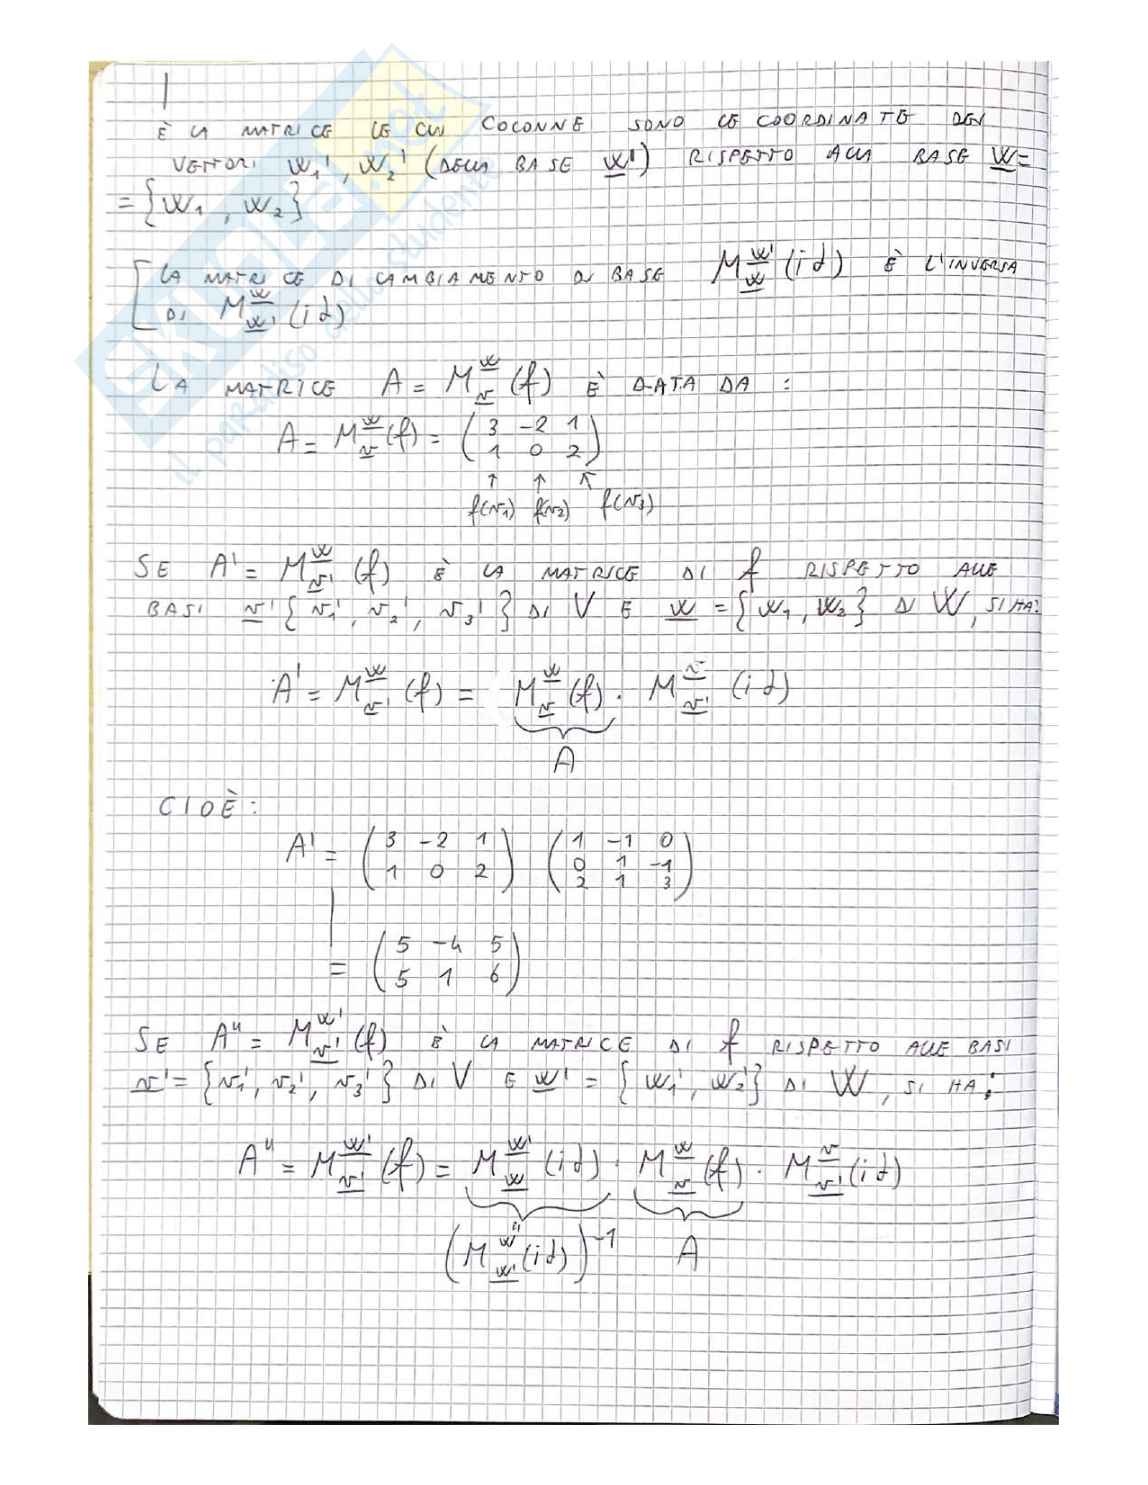 È LA MATRICE LE CUI COLONNE SONO LE COORDINATE DEI
VETTORI W₁', W₂' (DELLA BASE W') RISPETTO ALLA BASE W=
= {W₁, W₂}
[LA MATRICE DI CAMBIAMENTO DI BASE M_W^W' (id) È L'INVERSA
DI M_W'^W (id)
LA MATRICE A = M_v^W (f) È DATA DA :
A = M_v^W (f) = ( 3 -2 1
1 0 2 )
↑ ↑ ↖
f(v₁) f(v₂) f(v₃)
SE A' = M_v'^W (f) È LA MATRICE DI f RISPETTO ALLE
BASI v' {v₁', v₂', v₃'} DI V E W = {W₁, W₂} DI W, SI HA:
A' = M_v'^W (f) = M_v^W (f) · M_v'^v (id)
A
CIOÈ:
A' = ( 3 -2 1 ) ( 1 -1 0 )
( 1 0 2 ) ( 0 1 -1 )
( 2 1 3 )
= ( 5 -4 5
5 1 6 )
SE A" = M_v'^W' (f) È LA MATRICE DI f RISPETTO ALLE BASI
v' = {v₁', v₂', v₃'} DI V E W' = {W₁', W₂'} DI W, SI HA:
A" = M_v'^W' (f) = M_W^W' (id) · M_v^W (f) · M_v'^v (id)
(M_W'^W" (id))⁻¹ A
SKUOLA.not
il paradiso dello studente